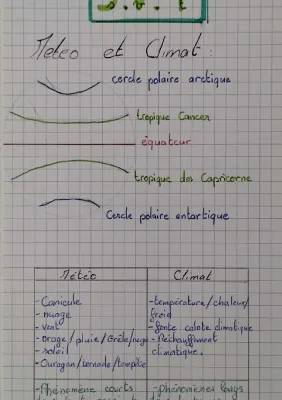 S.V.T
Météo et Climat :
cercle polaire arctique
tropique Cancer
équateur
tropique des Capricorne
Cercle polaire antartique
Météo Climat
- Canicule
- nuage
- vent
- orage / pluie / Grêle / neige
- soleil
- Ouragan / tornade / tempête
- température / chaleur /
froid
- fonte calote climatique
- Réchauffement
climatique.
- Phénomène courts
- phénomènes longs